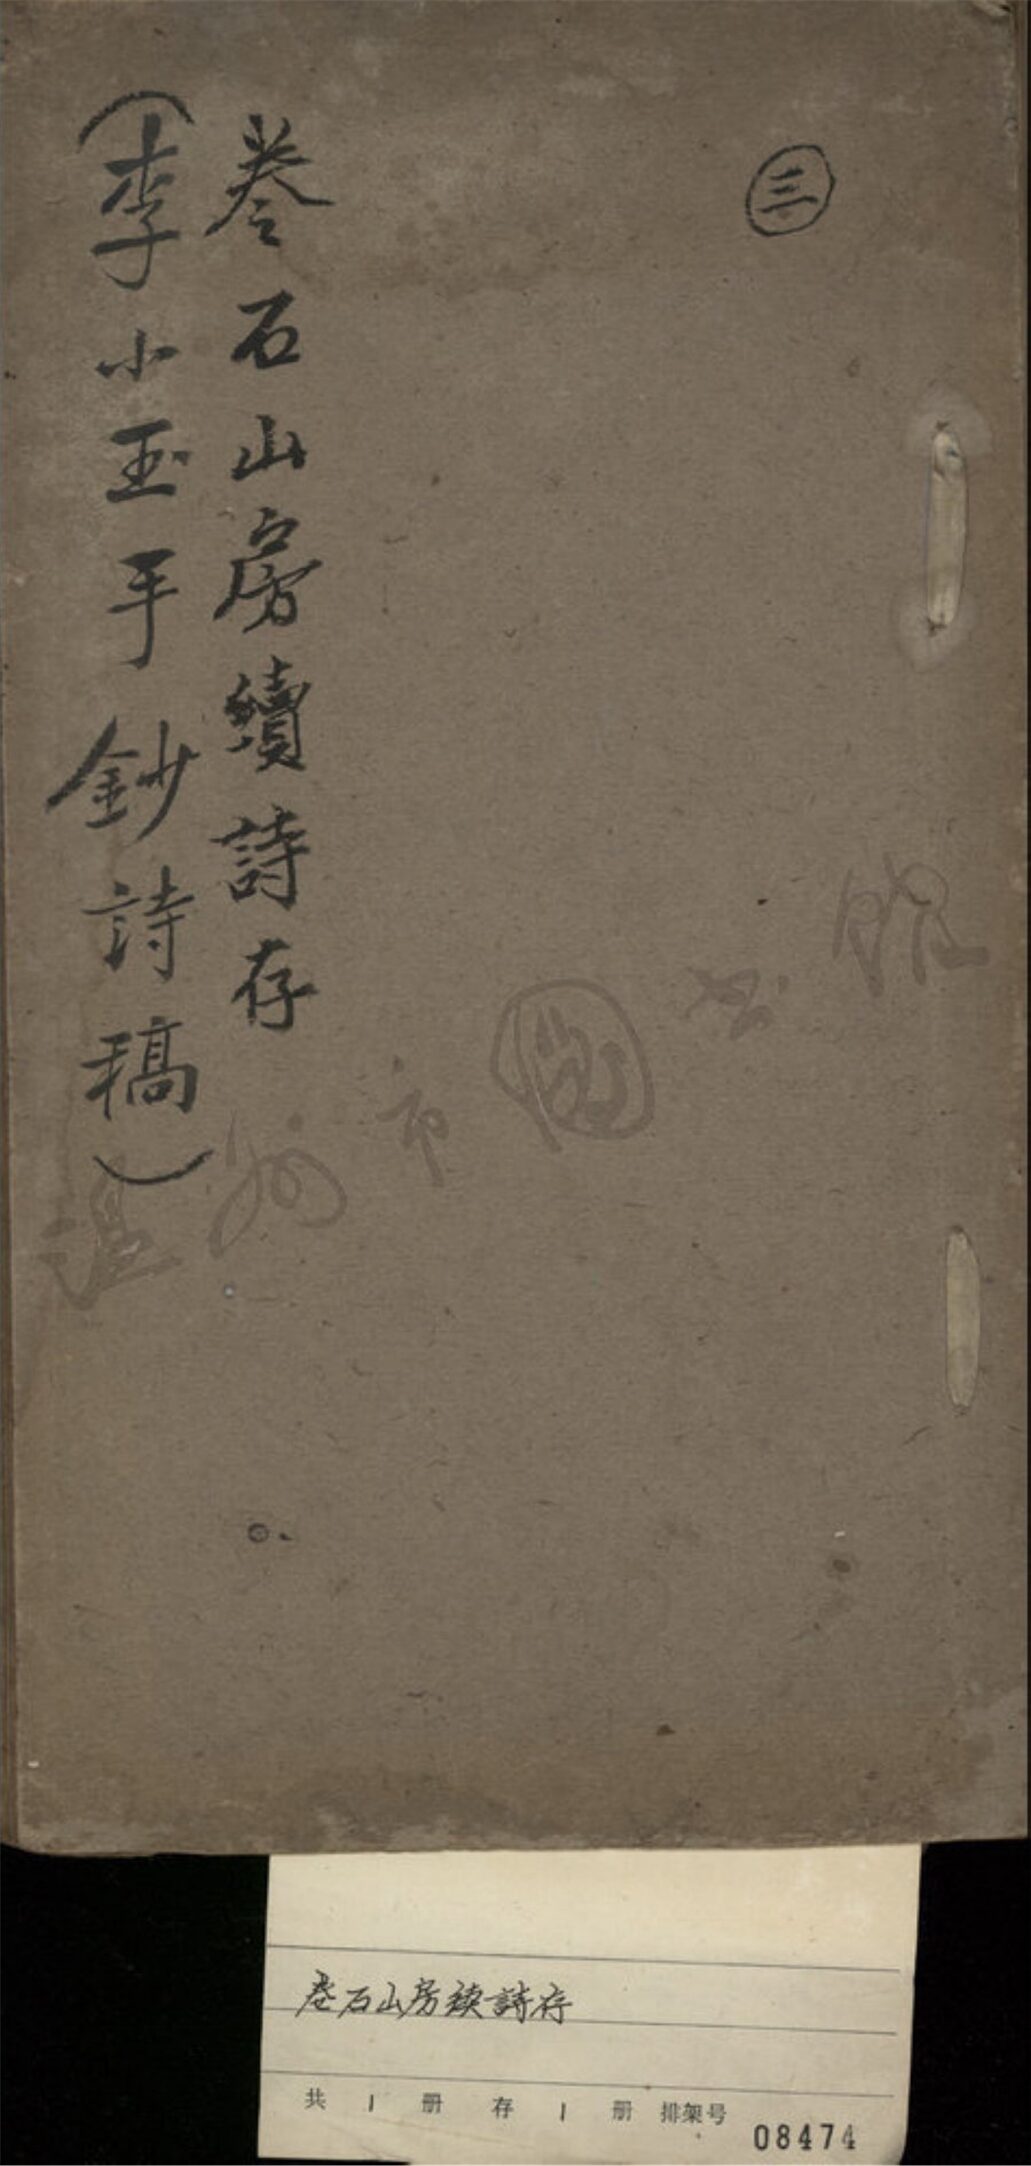 ㊂
卷石山房續詩存
（李小玉手鈔詩稿）
温州市圖书館
卷石山房续詩存
共 1 册 存 1 册 排架号
08474